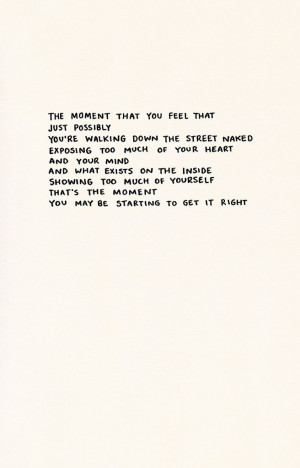 THE MOMENT THAT YOU FEEL THAT
JUST POSSIBLY
YOU'RE WALKING DOWN THE STREET NAKED
EXPOSING TOO MUCH OF YOUR HEART
AND YOUR MIND
AND WHAT EXISTS ON THE INSIDE
SHOWING TOO MUCH OF YOURSELF
THAT'S THE MOMENT
YOU MAY BE STARTING TO GET IT RIGHT